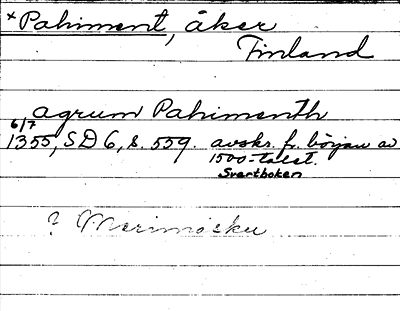 *Pahiment, åker
Finland
agrum Pahimenth
6/7
1355, SD 6, s. 559. avskr. fr. början av
1500-talet.
Svartboken
? Merimasku